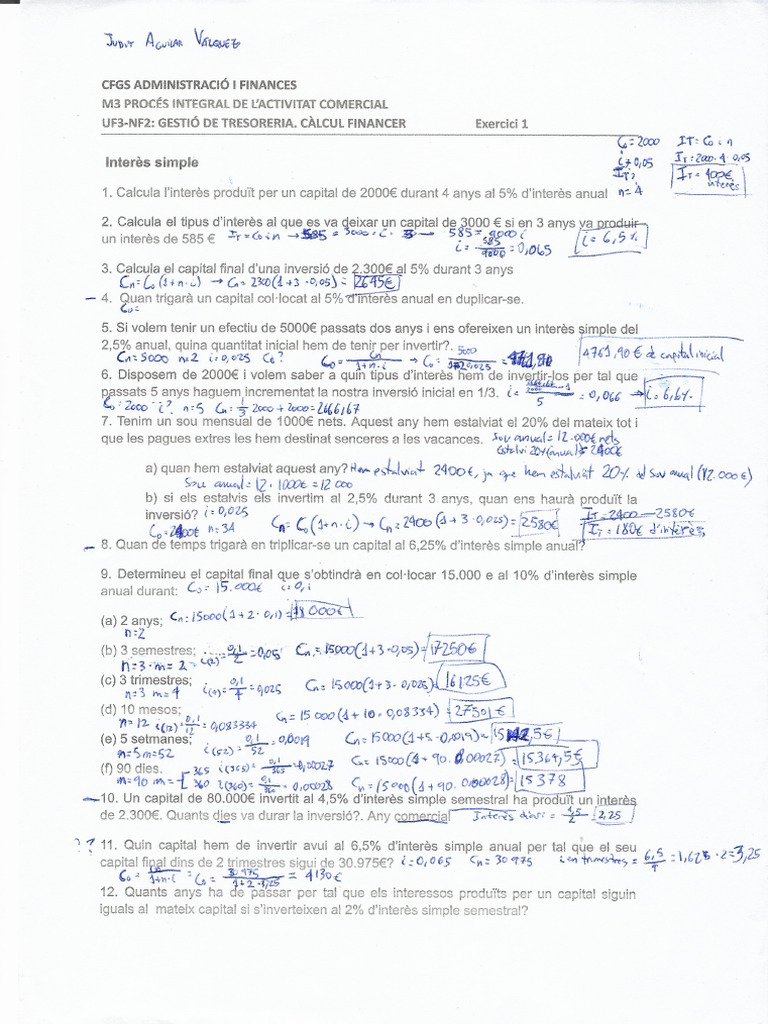 JUDIT AGUILAR VÁZQUEZ
CFGS ADMINISTRACIÓ I FINANCES
M3 PROCÉS INTEGRAL DE L'ACTIVITAT COMERCIAL
UF3-NF2: GESTIÓ DE TRESORERIA. CÀLCUL FINANCER Exercici 1
C₀=2000 IT= C₀ i n
i=0,05 IT= 2000·4·0,05
IT? IT= 400€
n=4 interès
Interès simple
1. Calcula l'interès produït per un capital de 2000€ durant 4 anys al 5% d'interès anual
2. Calcula el tipus d'interès al que es va deixar un capital de 3000 € si en 3 anys va produir
un interès de 585 € IT=C₀in → 585 = 3000·i·3 → 585 = 9000 i
i= 585/9000 =0,065 i= 6,5%
3. Calcula el capital final d'una inversió de 2.300€ al 5% durant 3 anys
Cn= C₀(1+n·i) → Cn= 2300(1+3·0,05)= 2645€
4. Quan trigarà un capital col·locat al 5% d'interès anual en duplicar-se.
C₀=
5. Si volem tenir un efectiu de 5000€ passats dos anys i ens ofereixen un interès simple del
2,5% anual, quina quantitat inicial hem de tenir per invertir?.
Cn=5000 n=2 i=0,025 C₀? C₀= Cn/1+n·i → C₀= 5000/1+2·0,025 = 4761,90 4761,90€ de capital inicial
6. Disposem de 2000€ i volem saber a quin tipus d'interès hem de invertir-los per tal que
passats 5 anys haguem incrementat la nostra inversió inicial en 1/3.
C₀=2000 i? n=5 Cn= 1/3 2000+2000=2666,67 = 0,066 → i= 6,6%
7. Tenim un sou mensual de 1000€ nets. Aquest any hem estalviat el 20% del mateix tot i
que les pagues extres les hem destinat senceres a les vacances. Sou anual=12.000€ nets
Estalvi 20%(anual)= 2400€
a) quan hem estalviat aquest any? Hem estalviat 2400€, ja que hem estalviat 20% del sou anual (12.000€)
Sou anual=12·1000€=12000
b) si els estalvis els invertim al 2,5% durant 3 anys, quan ens haurà produït la
inversió? i=0,025
C₀=2400€ n=3A Cn= C₀(1+n·i) → Cn=2400(1+3·0,025)= 2580€
IT=2400-2580€
IT= 180€ d'interès
8. Quan de temps trigarà en triplicar-se un capital al 6,25% d'interès simple anual?
9. Determineu el capital final que s'obtindrà en col·locar 15.000 e al 10% d'interès simple
anual durant: C₀=15.000€ i=0,1
(a) 2 anys; Cn=15000(1+2·0,1)=18000€
n=2
(b) 3 semestres; i(2)= 0,1/2 =0,05 Cn=15000(1+3·0,05)= 17250€
n=3·m=2
(c) 3 trimestres; i(4)= 0,1/4 =0,025 Cn=15000(1+3·0,025)= 16125€
n=3 m=4
(d) 10 mesos; Cn=15 000(1+10·0,08334)= 27501€
n=12 i(12)= 0,1/12 =0,083334
(e) 5 setmanes; i(52)= 0,1/52 =0,0019 Cn=15000(1+5·0,0019)= 15142,5€
n=5 m=52
(f) 90 dies. 365 i(365)= 0,1/365 =0,00027 Cn=15000(1+90·0,00027)= 15.364,5€
m=90 m= 360 i(360)= 0,1/360 =0,00028 Cn=15000(1+90·0,00028)= 15378
10. Un capital de 80.000€ invertit al 4,5% d'interès simple semestral ha produït un interès
de 2.300€. Quants dies va durar la inversió?. Any comercial Interès diari= 4,5/2 = 2,25
?? 11. Quin capital hem de invertir avui al 6,5% d'interès simple anual per tal que el seu
capital final dins de 2 trimestres sigui de 30.975€? i=0,065 Cn=30975 i en trimestres= 6,5/4 =1,625·2=3,25
C₀= Cn/1+n·i = C₀= 30.975/1+2·3,25 = 4130€
12. Quants anys ha de passar per tal que els interessos produïts per un capital siguin
iguals al mateix capital si s'inverteixen al 2% d'interès simple semestral?